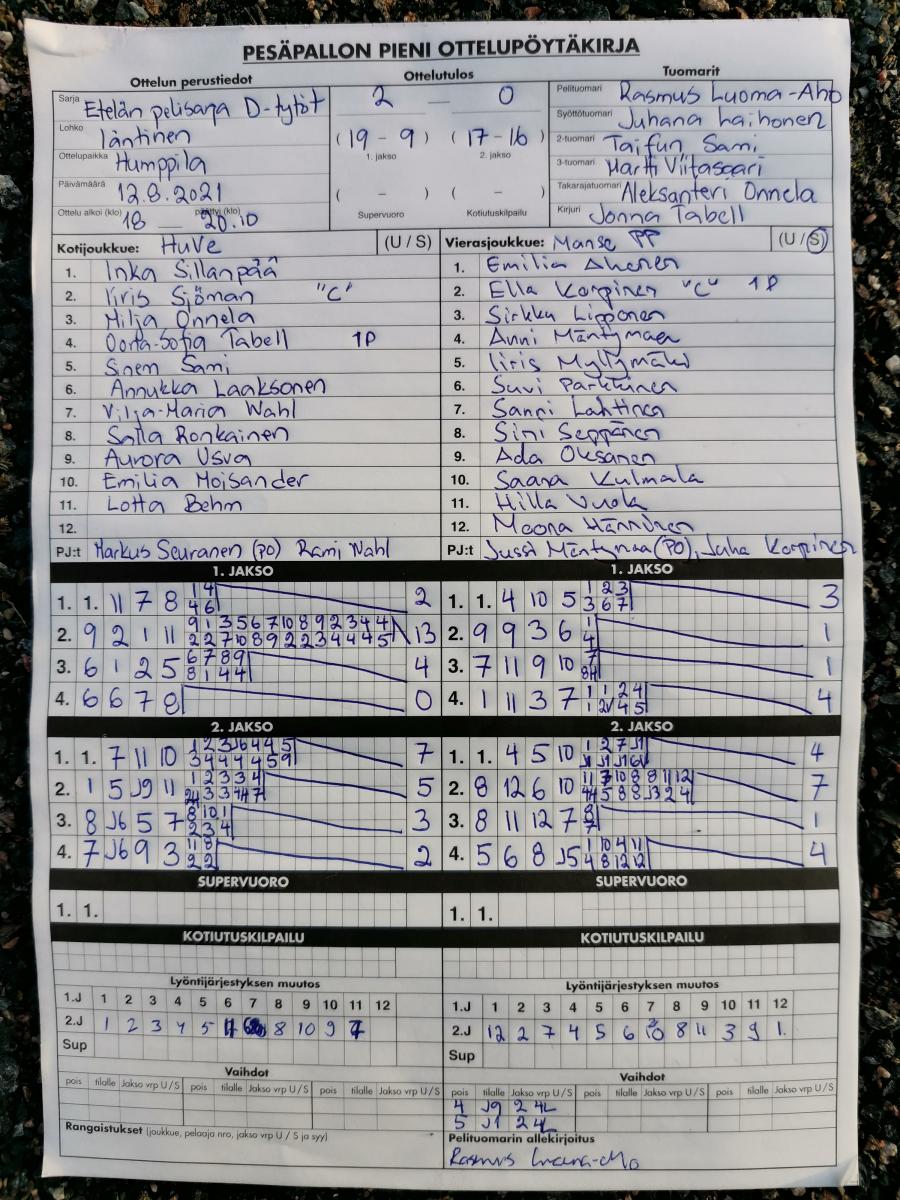 PESÄPALLON PIENI OTTELUPÖYTÄKIRJA
Ottelun perustiedot
Ottelutulos
Tuomarit
Sarja Etelän pelisarja D-tytöt
Lohko läntinen
Ottelupaikka Humppila
Päivämäärä 12.8.2021
Ottelu alkoi (klo) 18 — päättyi (klo) 20.10
2 — 0
(19 - 9) (17 - 16)
1. jakso 2. jakso
( - ) ( - )
Supervuoro Kotiutuskilpailu
Pelituomari Rasmus Luoma-Aho
Syöttötuomari Juhana Laihonen
2-tuomari Taifun Sami
3-tuomari Martti Viitasaari
Takarajatuomari Aleksanteri Onnela
Kirjuri Jonna Tabell
Kotijoukkue: HuVe (U / S)
1. Inka Sillanpää
2. Iiris Sjöman "C"
3. Milja Onnela
4. Oorta-Sofia Tabell 1P
5. Sinem Sami
6. Annukka Laaksonen
7. Vilja-Maria Wahl
8. Salla Ronkainen
9. Aurora Usva
10. Emilia Moisander
11. Lotta Behm
12.
PJ:t Markus Seuranen (PO) Rami Wahl
Vierasjoukkue: Manse PP (U / S)
1. Emilia Ahonen
2. Ella Korpinen "C" 1P
3. Sirkku Lipponen
4. Anni Mäntymaa
5. Iiris Myllymäki
6. Suvi Parkkinen
7. Sanni Lahtinen
8. Sini Seppänen
9. Ada Oksanen
10. Saana Kulmala
11. Hilla Vuola
12. Moona Hänninen
PJ:t Jussi Mäntymaa (PO), Juha Korpinen
1. JAKSO
1. 1. 11 7 8 1 4 2
4 6
2. 9 2 1 11 9 1 3 5 6 7 10 8 9 2 3 4 4 13
2 2 7 10 8 9 2 2 3 4 4 4 5
3. 6 1 2 5 6 7 8 9 4
8 1 4 4
4. 6 6 7 8 0
1. JAKSO
1. 1. 4 10 5 1 2 3 3
3 6 7
2. 9 9 3 6 1 1
4
3. 7 11 9 10 7 1
4. 1 11 3 7 1 1 2 4 4
2. JAKSO
1. 1. 7 11 10 7
2. 1 5 J9 11 1 2 3 3 4 5
3. 8 J6 5 7 8 10 1 3
2 3 4
4. 7 J6 9 3 11 8 2
2 2
2. JAKSO
1. 1. 4 5 10 1 2 7 J1 4
2. 8 12 6 10 11 7 10 8 8 11 12 7
3. 8 11 12 7 8 1
7
4. 5 6 8 J5 1 10 4 11 4
4 8 12 12
SUPERVUORO
1. 1.
SUPERVUORO
1. 1.
KOTIUTUSKILPAILU
KOTIUTUSKILPAILU
Lyöntijärjestyksen muutos
1.J 1 2 3 4 5 6 7 8 9 10 11 12
2.J 1 2 3 4 5 8 10 9 7
Sup
Lyöntijärjestyksen muutos
1.J 1 2 3 4 5 6 7 8 9 10 11 12
2.J 12 2 7 4 5 6 10 8 11 3 9 1.
Sup
Vaihdot
pois tilalle Jakso vrp U / S pois tilalle Jakso vrp U / S pois tilalle Jakso vrp U / S
Rangaistukset (joukkue, pelaaja nro, jakso vrp U / S ja syy)
Vaihdot
pois tilalle Jakso vrp U / S pois tilalle Jakso vrp U / S pois tilalle Jakso vrp U / S
4 J9 2 4L
5 J1 2 4L
Pelituomarin allekirjoitus
Rasmus Luoma-Aho